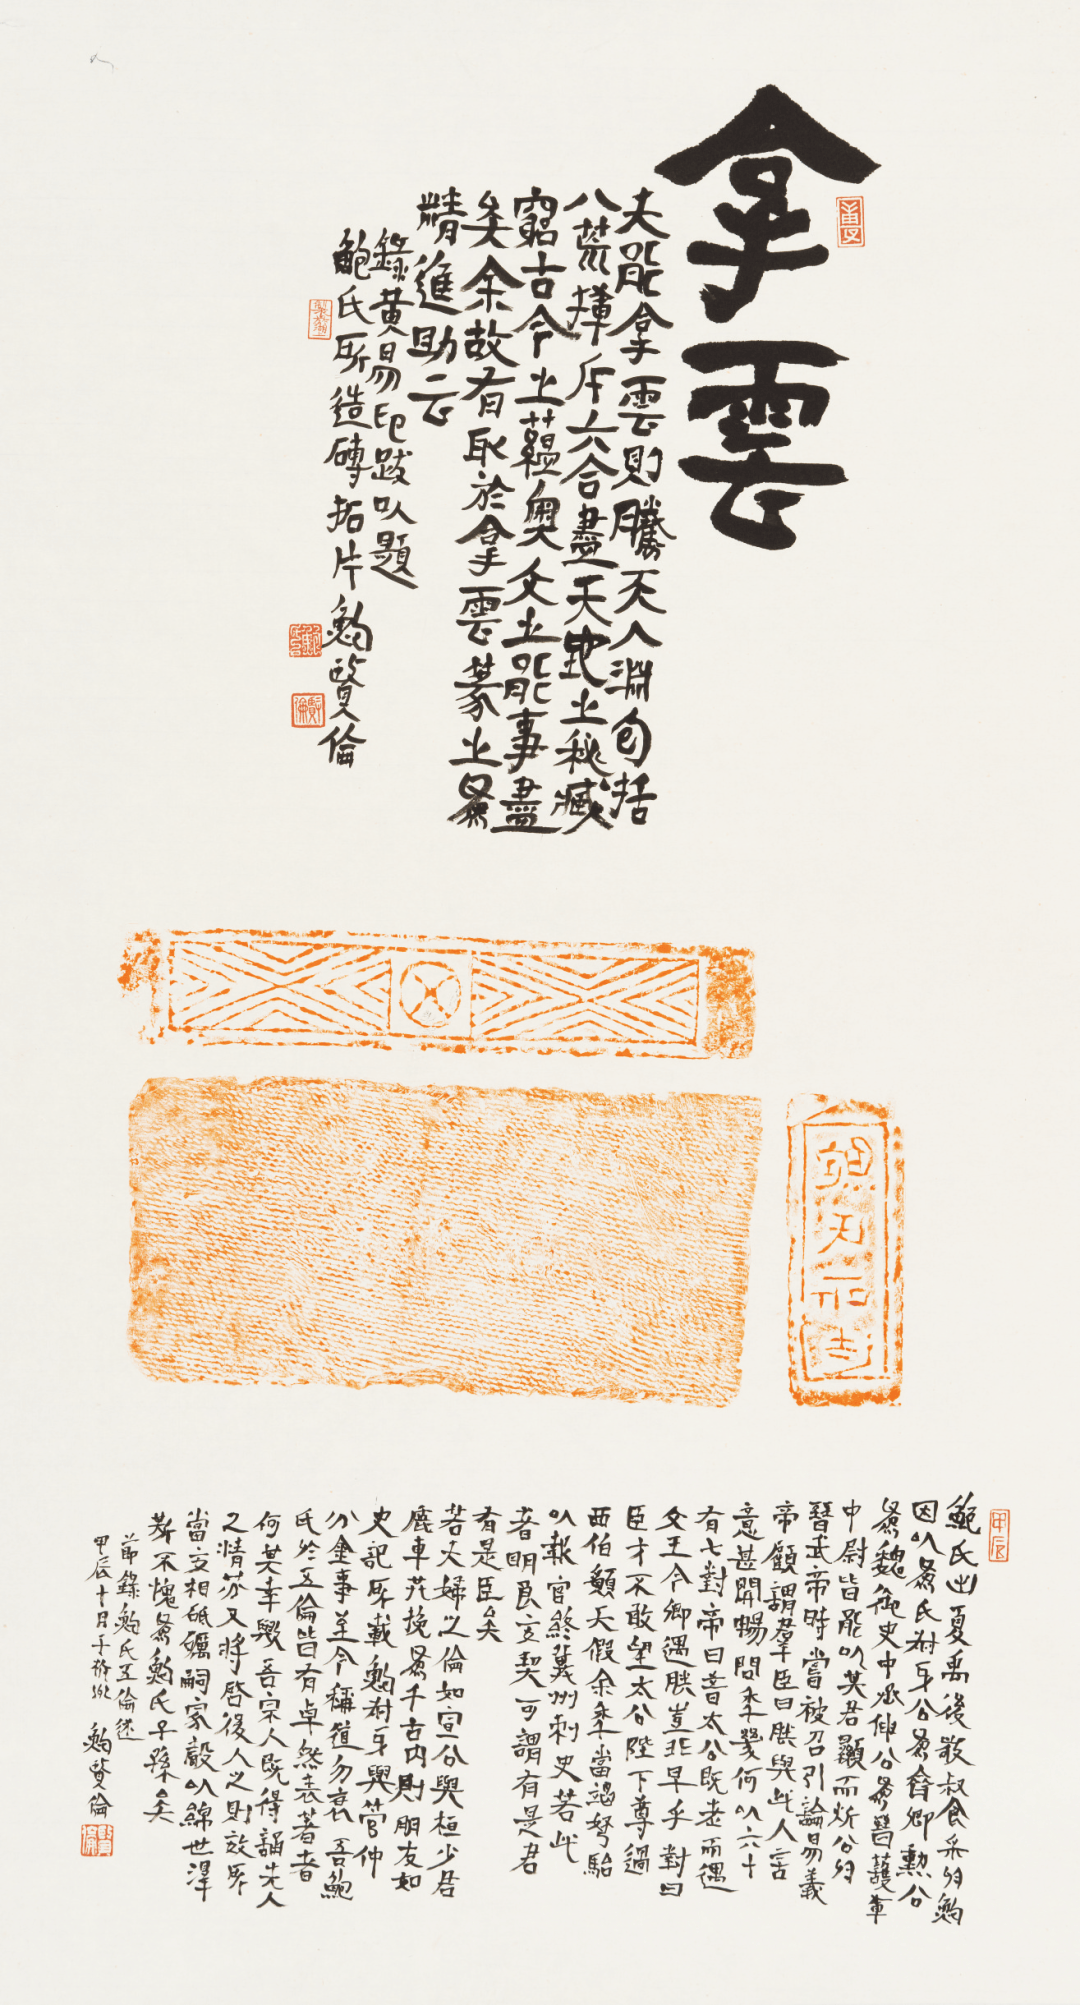 拿雲
夫能拿雲則騰天入淵包括
八荒揮斥六合盡天地之秘藏
窮古今之蘊奧文之能事盡
矣余故有取於拿雲篆之為
精進助云
錄黃易印跋以題
鮑氏所造磚拓片 鮑賢倫
鮑氏出夏禹後敬叔食采於鮑
因以為氏叔牙公為齊卿勛公
為魏御史中丞伸公為晉護軍
中尉皆能以其君顯而炘公於
晉武帝時嘗被召引論易義
帝顧謂群臣曰朕與此人言
意甚開暢問年幾何以六十
有七對帝曰昔太公既老而遇
文王今卿遇朕豈非早乎對曰
臣才不敢望太公陛下尊過
西伯願天假余年當竭弩駘
以報官終冀州刺史若此
者明良立契可謂有是君
有是臣矣
若夫婦之倫如宣公與桓少君
鹿車共挽為千古內則朋友如
史記所載鮑叔牙與管仲
分金事至今稱道勿衰吾鮑
氏於五倫皆有卓然表著者
何其幸與吾宗人既得誦先人
之清芬又將啓後人之則效所
當交相砥礪嗣家聲以綿世澤
斯不愧為鮑氏子孫矣
節錄鮑氏五倫述
甲辰十月于 鮑賢倫
甲辰